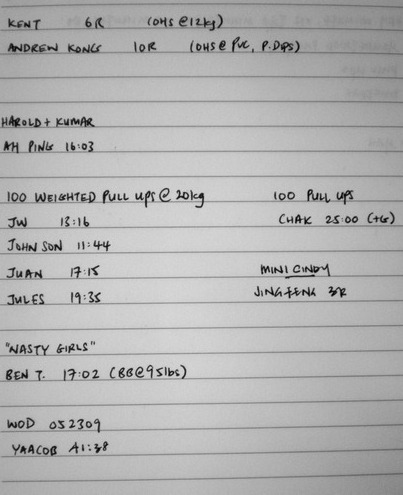 KENT 6R (OHS @12kg)
ANDREW KONG 10R (OHS @ PVC, P.DIPS)
HAROLD + KUMAR
AH PING 16:03
100 WEIGHTED PULL UPS @ 20kg
JW 13:16
JOHNSON 11:44
JUAN 17:15
JULES 19:35
100 PULL UPS
CHAK 25:00 (+G)
MINI CINDY
JINGFENG 3R
"NASTY GIRLS"
BEN T. 17:02 (BB@95lbs)
WOD 052309
YAACOB 41:38